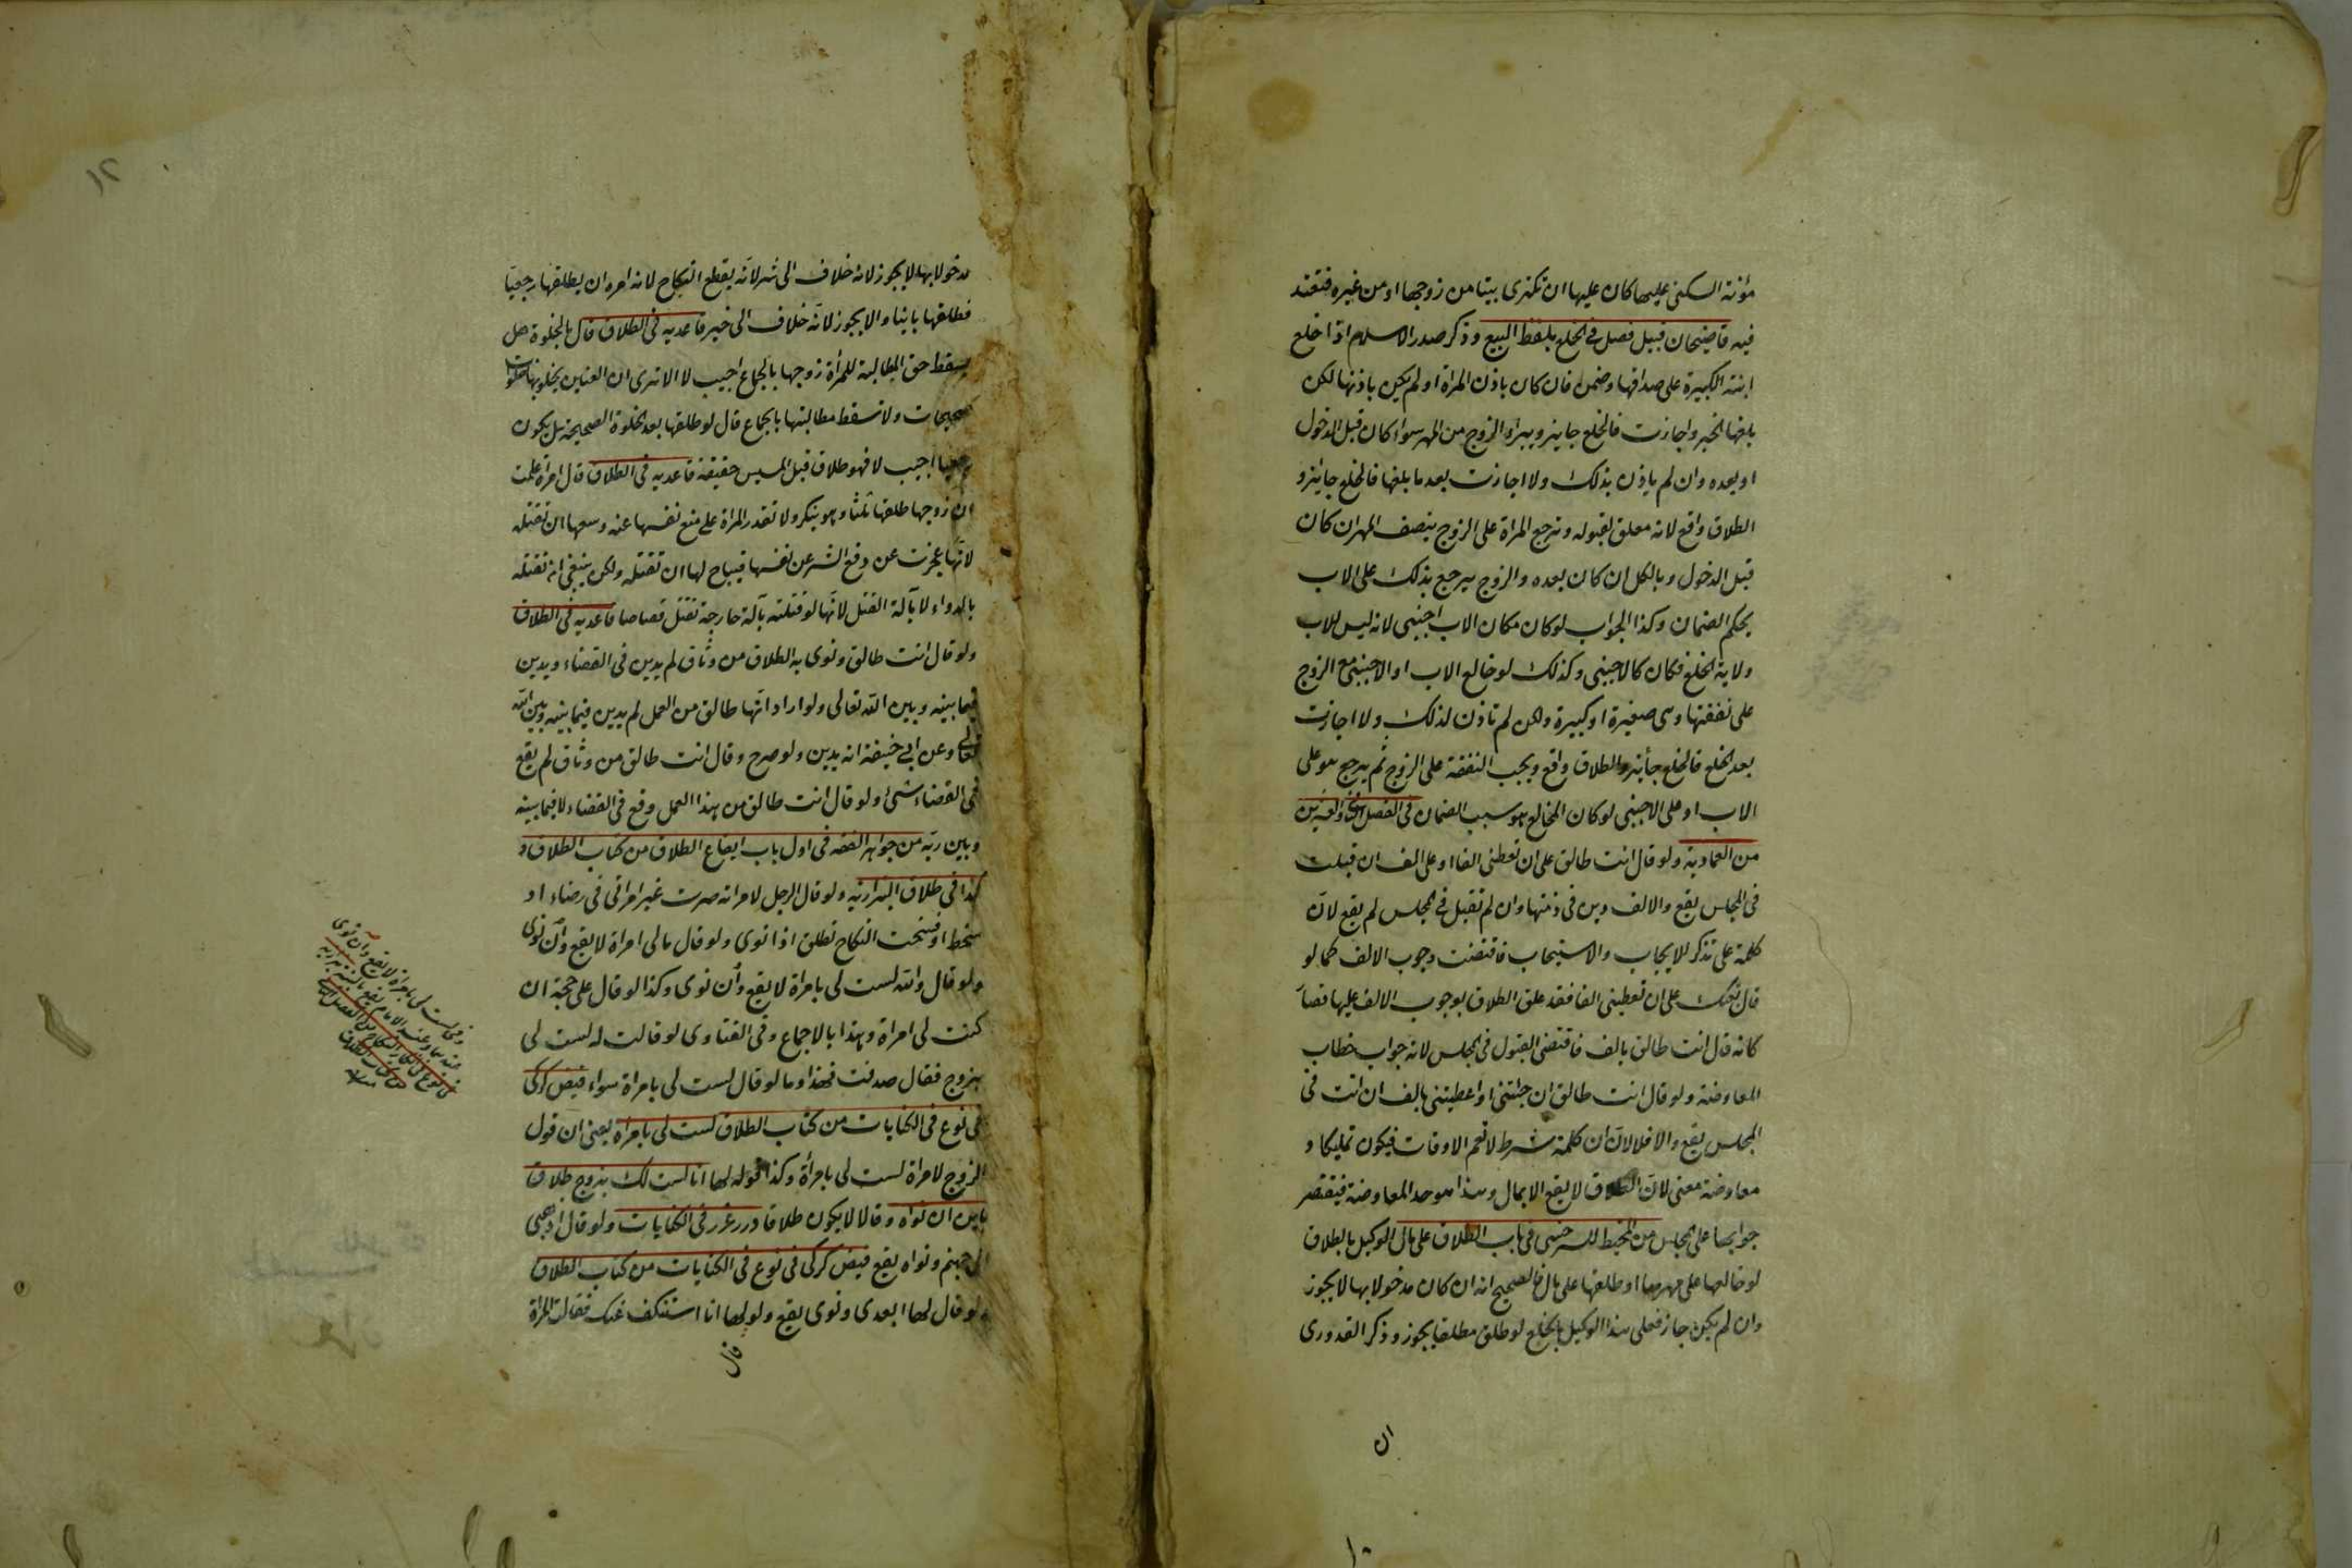 مؤنة السكنى عليها كان عليها ان تكترى بيتا من زوجها او من غيره فتعتد
فيه قاضيخان قبيل فصل في الخلع بلفظ البيع وذكر صدر الاسلام اذا خلع
ابنته الكبيرة على صداقها وضمن فان كان باذن المراة او لم يكن باذنها لكن
بلغها الخبر واجازت فالخلع جايز ويبراء الزوج من المهر سواء كان قبل الدخول
او بعده وان لم ياذن بذلك ولا اجازت بعد ما بلغها فالخلع جايز و
الطلاق واقع لانه معلق بقبوله وترجع المراة على الزوج بنصف المهر ان كان
قبل الدخول وبالكل ان كان بعده والزوج يرجع بذلك على الاب
بحكم الضمان وكذا الجواب لو كان مكان الاب اجنبى لانه ليس للاب
ولاية الخلع فكان كالاجنبى وكذلك لو خالع الاب او الاجنبى مع الزوج
على نفقتها وهى صغيرة او كبيرة ولكن لم تاذن لذلك ولا اجازت
بعد الخلع فالخلع جائز والطلاق واقع ويجب النفقة على الزوج ثم يرجع هو على
الاب او على الاجنبى لو كان المخالع هو سبب الضمان فى الفصل والعشرين
من العمادية ولو قال انت طالق على ان تعطنى الفا او على الف ان قبلت
فى المجلس يقع والالف دين فى ذمتها وان لم تقبل فى المجلس لم يقع لان
كلمة على تذكر للايجاب والاستيجاب فاقتضت وجوب الالف كما لو
قال بعتك على ان تعطينى الفا فقد علق الطلاق بوجوب الالف عليها فصار
كانه قال انت طالق بالف فاقتضى القبول فى المجلس لانه جواب خطاب
المعاوضة ولو قال انت طالق ان جئتنى او اعطيتنى بالف ان اتت فى
المجلس يقع والا فلا لان ان كلمة شرط لا تعم الاوقات فيكون تمليكا و
معاوضة معنى لان الطلاق لا يقع الا بمال وهذا هو حد المعاوضة فيقتصر
جوابها على المجلس من المحيط للسرخسى فى باب الطلاق على مال الوكيل بالطلاق
لو خالعها على مهرها او طلقها على مال فالصحيح انه ان كان مدخولا بها لا يجوز
وان لم يكن جاز فعلى هذا الوكيل بالخلع لو طلق مطلقا يجوز وذكر القدورى
ان
١٢
مدخولا بها لا يجوز لانه خلاف الى شر لانه يقطع النكاح لانه امره ان يطلقها رجعيا
فطلقها باينا والا يجوز لانه خلاف الى خير قاعديه فى الطلاق قال بالخلوة هل
يسقط حق المطالبة للمرأة زوجها بالجماع اجيب لا الا ترى ان العنين يخلو بها خلوات
صحيحات ولا تسقط مطالبتها بالجماع قال لو طلقها بعد الخلوة الصحيحة هل يكون
رجعيا اجيب لا فهو طلاق قبل المسيس حقيقة قاعديه فى الطلاق قال امراة علمت
ان زوجها طلقها ثلثا وهو ينكر ولا تقدر المراة على منع نفسها عنه وسعها ان تقتله
لانها عجزت عن دفع الشر عن نفسها فيباح لها ان تقتله ولكن ينبغى ان تقتله
بالدواء لا بآلة القتل لانها لو قتلته بآلة جارحة تقتل قصاصا قاعديه فى الطلاق
ولو قال انت طالق ونوى به الطلاق من وثاق لم يدين فى القضاء ويدين
فيما بينه وبين الله تعالى ولو اراد انها طالق من العمل لم يدين فيما بينه وبين الله
تعالى وعن ابى حنيفة انه يدين ولو صرح وقال انت طالق من وثاق لم يقع
فى القضاء شئ ولو قال انت طالق من هذا العمل وقع فى القضاء لا فيما بينه
وبين ربه من جواهر الفقه فى اول باب ايقاع الطلاق من كتاب الطلاق و
كذا فى طلاق البزازيه ولو قال الرجل لامراته صرت غير امراتى فى رضاء او
سخط او فسخت النكاح تطلق اذا نوى ولو قال مالى امراة لا يقع وان نوى
ولو قال والله لست لى بامراة لا يقع وان نوى وكذا لو قال على حجة ان
كنت لى امراة وهذا بالاجماع وفى الفتاوى لو قالت له لست لى
بزوج فقال صدقت فهذا وما لو قال لست لى بامراة سواء فيض كركى
فى نوع فى الكنايات من كتاب الطلاق لست لى بامراة يعنى ان قول
الزوج لامراة لست لى بامرأة وكذا قوله لها انا لست لك بزوج طلاق
باين ان نواه وقالا لا يكون طلاقا درر غرر فى الكنايات ولو قال اذهبى
الى جهنم ونواه يقع فيض كركى فى نوع فى الكنايات من كتاب الطلاق
ولو قال لها ابعدى ونوى يقع ولو لها انا استنكف عنك فقالت المراة
قال
وفى لست لى بامراة لا يقع وان نوى
عندهما وعند الامام يقع بالنية بزازيه